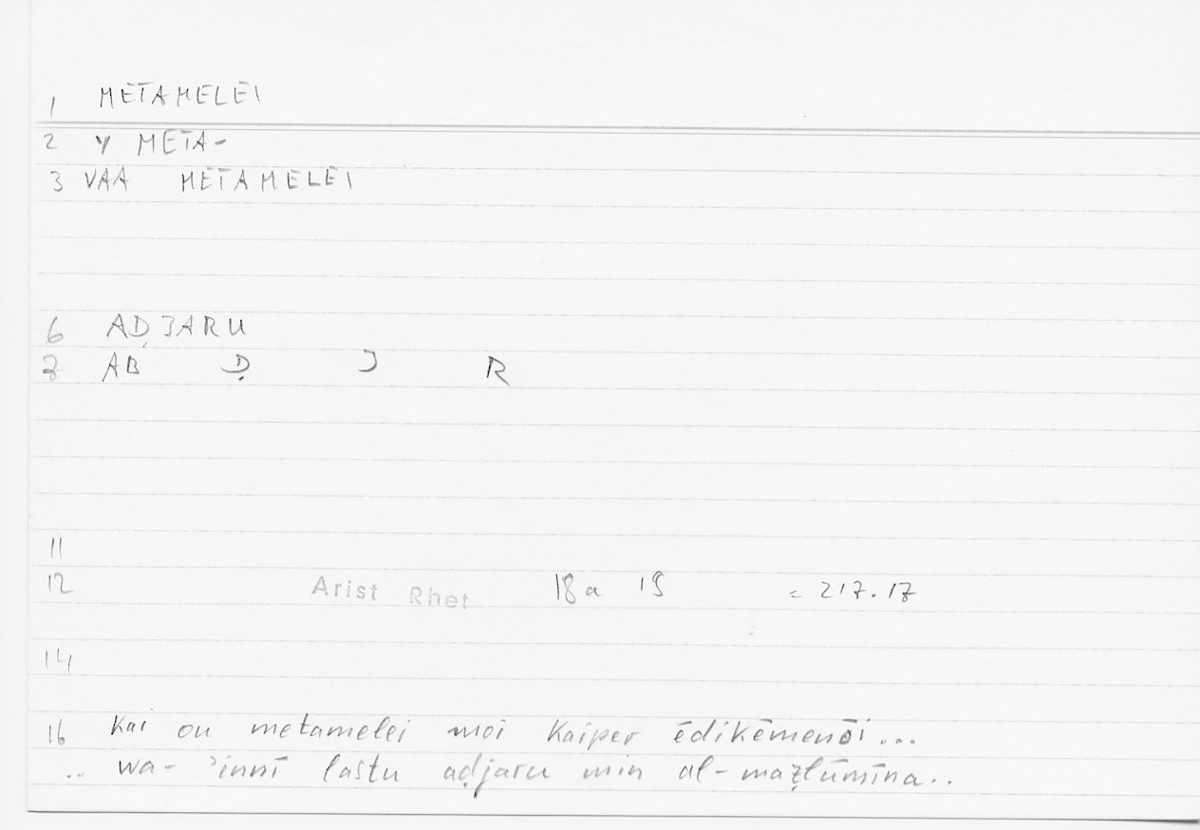 1 METAMELEI
2 Y META-
3 VAA METAMELEI
6 AḌJARU
8 AB Ḍ J R
11
12 Arist Rhet 18a 19 = 217.17
14
16 kai ou metamelei moi kaiper ēdikēmenōi...
.. wa- ʾinnī lastu aḍjaru min al-maẓlūmīna..